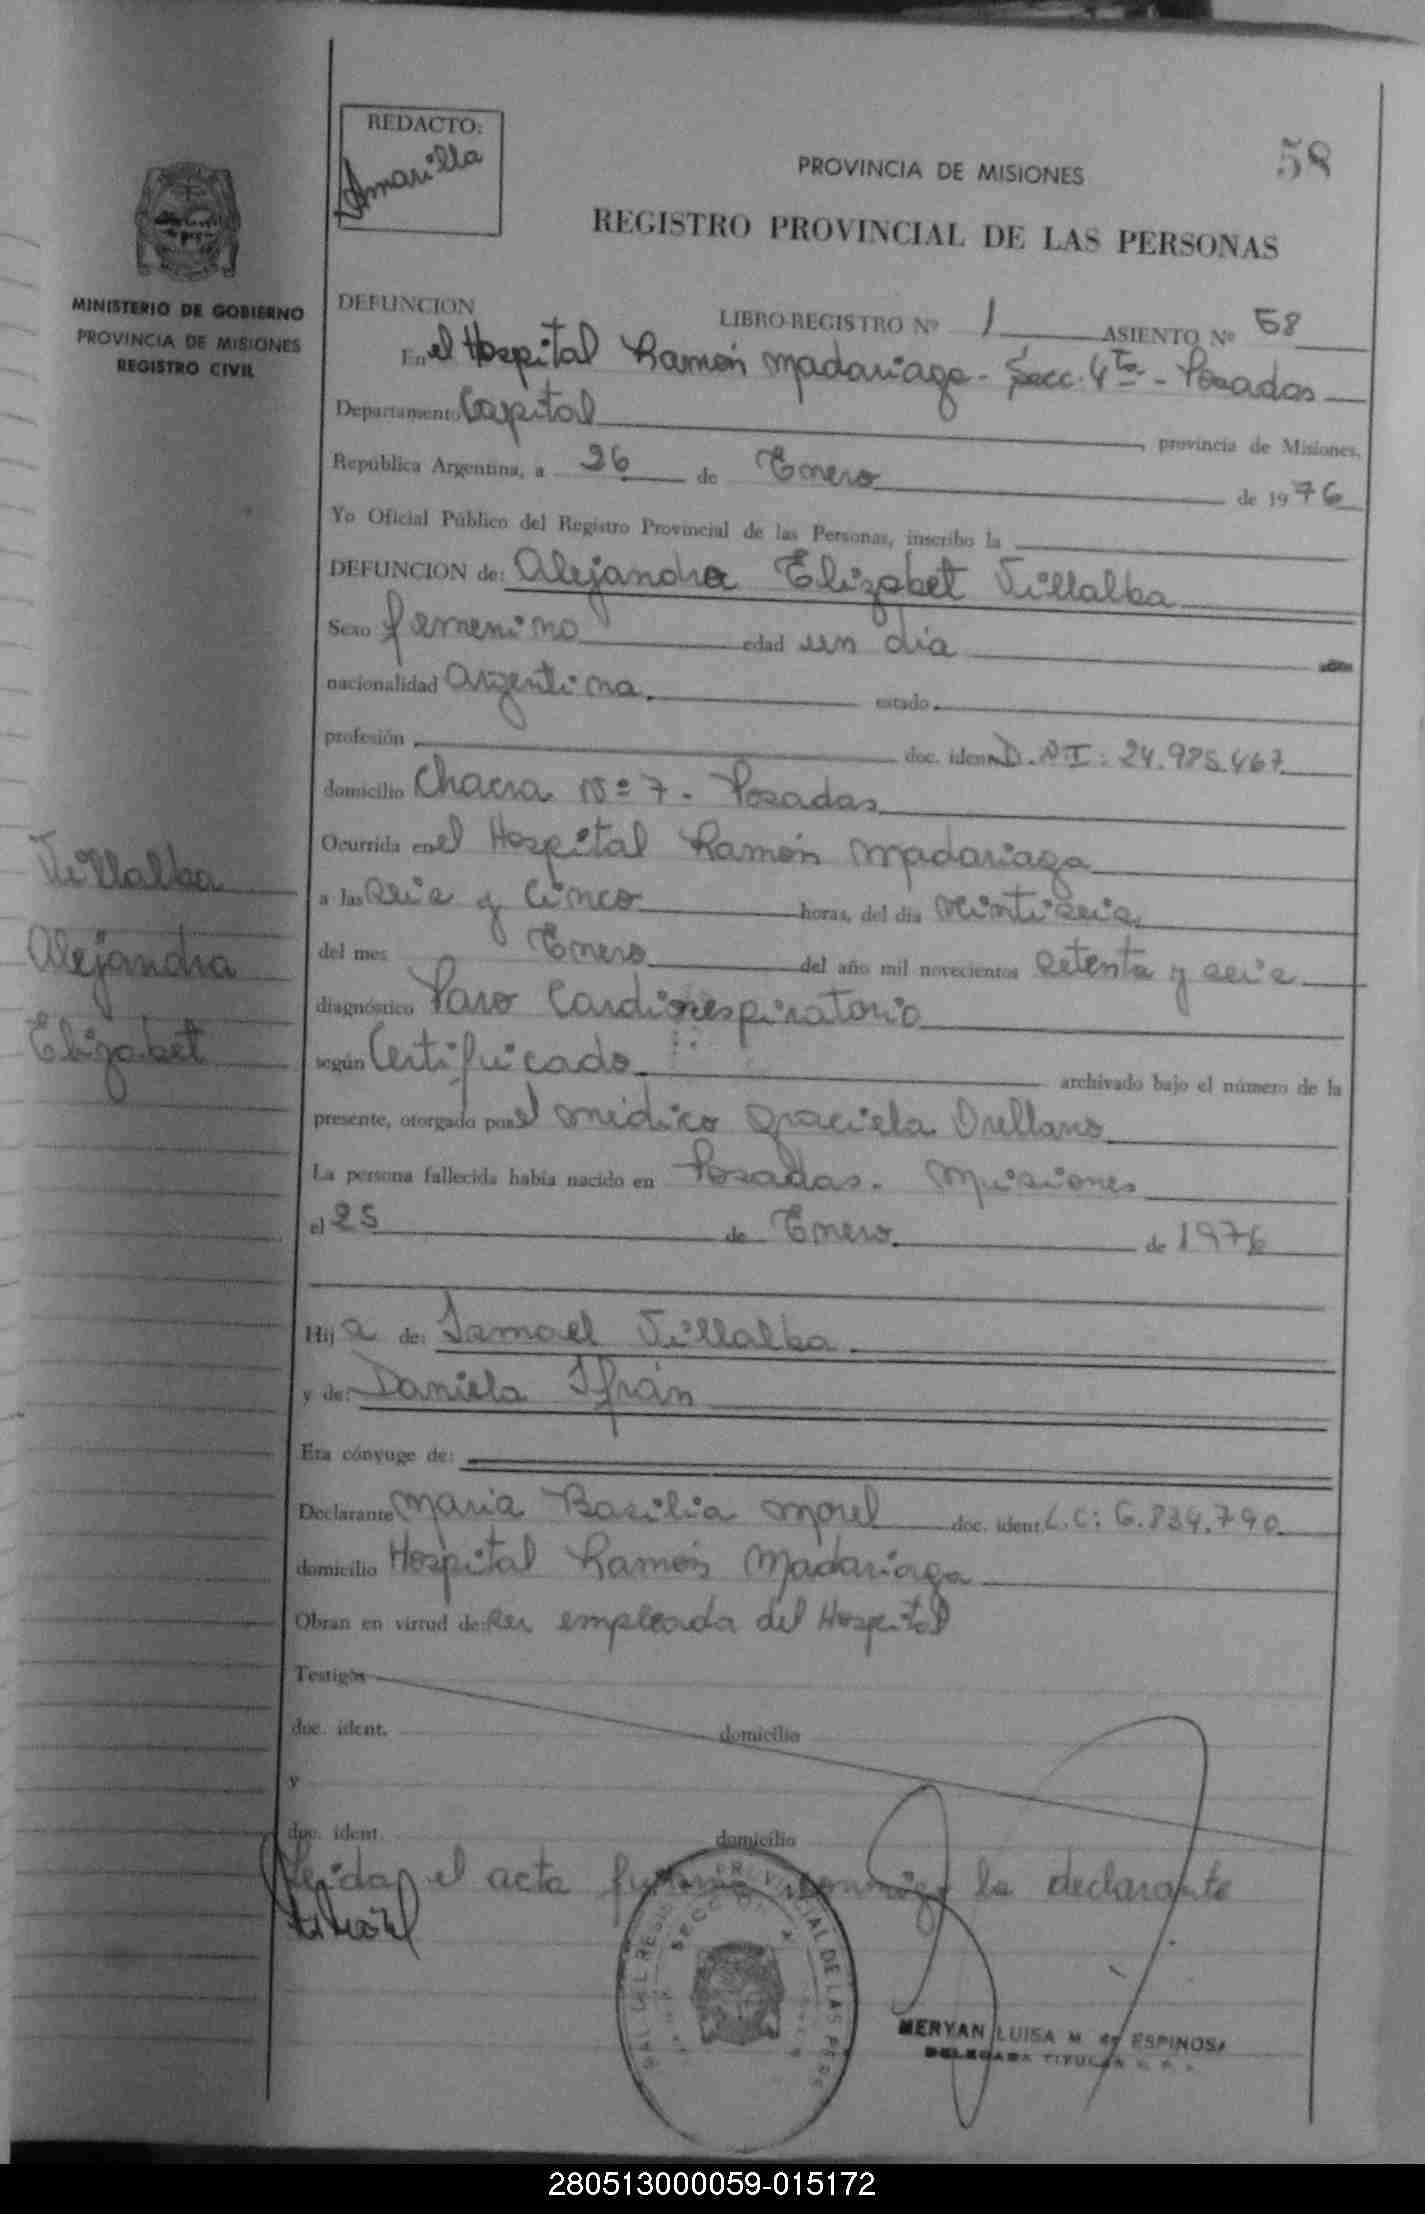 REDACTO:
Amarilla
58
PROVINCIA DE MISIONES
REGISTRO PROVINCIAL DE LAS PERSONAS
MINISTERIO DE GOBIERNO
PROVINCIA DE MISIONES
REGISTRO CIVIL
DEFUNCION
LIBRO-REGISTRO Nº 1 ASIENTO Nº 58
En el Hospital Ramón Madariaga - Secc. 4ta - Posadas
Departamento Capital, provincia de Misiones,
República Argentina, a 26 de Enero de 1976
Yo Oficial Público del Registro Provincial de las Personas, inscribo la
DEFUNCION de: Alejandra Elizabet Villalba
Sexo femenino edad un día
nacionalidad Argentina. estado
profesión doc. ident. D.N.I: 24.985.467
domicilio Chacra Nº 7 - Posadas
Ocurrida en el Hospital Ramón Madariaga
a las seis y cinco horas, del día veintiseis
del mes Enero del año mil novecientos setenta y seis
diagnóstico Paro Cardiorespiratorio
según Certificado archivado bajo el número de la
presente, otorgado por el médico Graciela Orellano
La persona fallecida había nacido en Posadas. Misiones
el 25 de Enero de 1976
Villalba
Alejandra
Elizabet
Hij a de: Ismael Villalba
y de: Daniela Ifrán
Era cónyuge de:
Declarante Maria Basilia Morel doc. ident. L.C: 6.834.790
domicilio Hospital Ramón Madariaga
Obran en virtud de: ser empleada del Hospital
Testigos
doc. ident. domicilio
y
doc. ident. domicilio
Leida el acta firma conmigo la declarante
SECCION 4
MERYAN LUISA M. de ESPINOSA
DELEGADA TITULAR
280513000059-015172